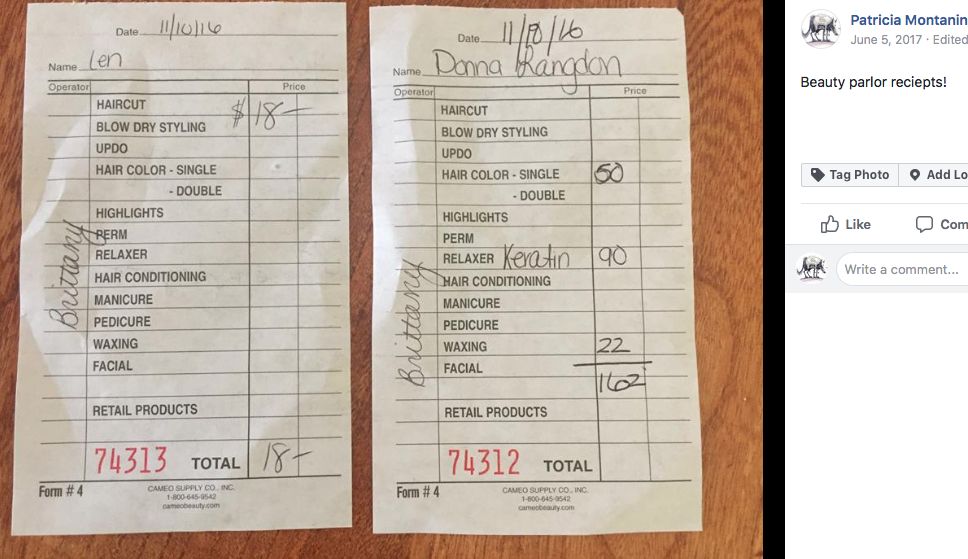 Date 11/10/16
Name Len
Operator Price
HAIRCUT $ 18-
BLOW DRY STYLING
UPDO
HAIR COLOR - SINGLE
- DOUBLE
HIGHLIGHTS
PERM
RELAXER
HAIR CONDITIONING
MANICURE
PEDICURE
WAXING
FACIAL
RETAIL PRODUCTS
Brittany
74313 TOTAL 18-
Form # 4
CAMEO SUPPLY CO., INC.
1-800-645-9542
cameobeauty.com
Date 11/10/16
Name Donna Rangdon
Operator Price
HAIRCUT
BLOW DRY STYLING
UPDO
HAIR COLOR - SINGLE 50
- DOUBLE
HIGHLIGHTS
PERM
RELAXER Keratin 90
HAIR CONDITIONING
MANICURE
PEDICURE
WAXING 22
FACIAL
162
RETAIL PRODUCTS
Brittany
74312 TOTAL
Form # 4
CAMEO SUPPLY CO., INC.
1-800-645-9542
cameobeauty.com
Patricia Montanin
June 5, 2017 · Edited
Beauty parlor reciepts!
Tag Photo Add Lo
Like Com
Write a comment...